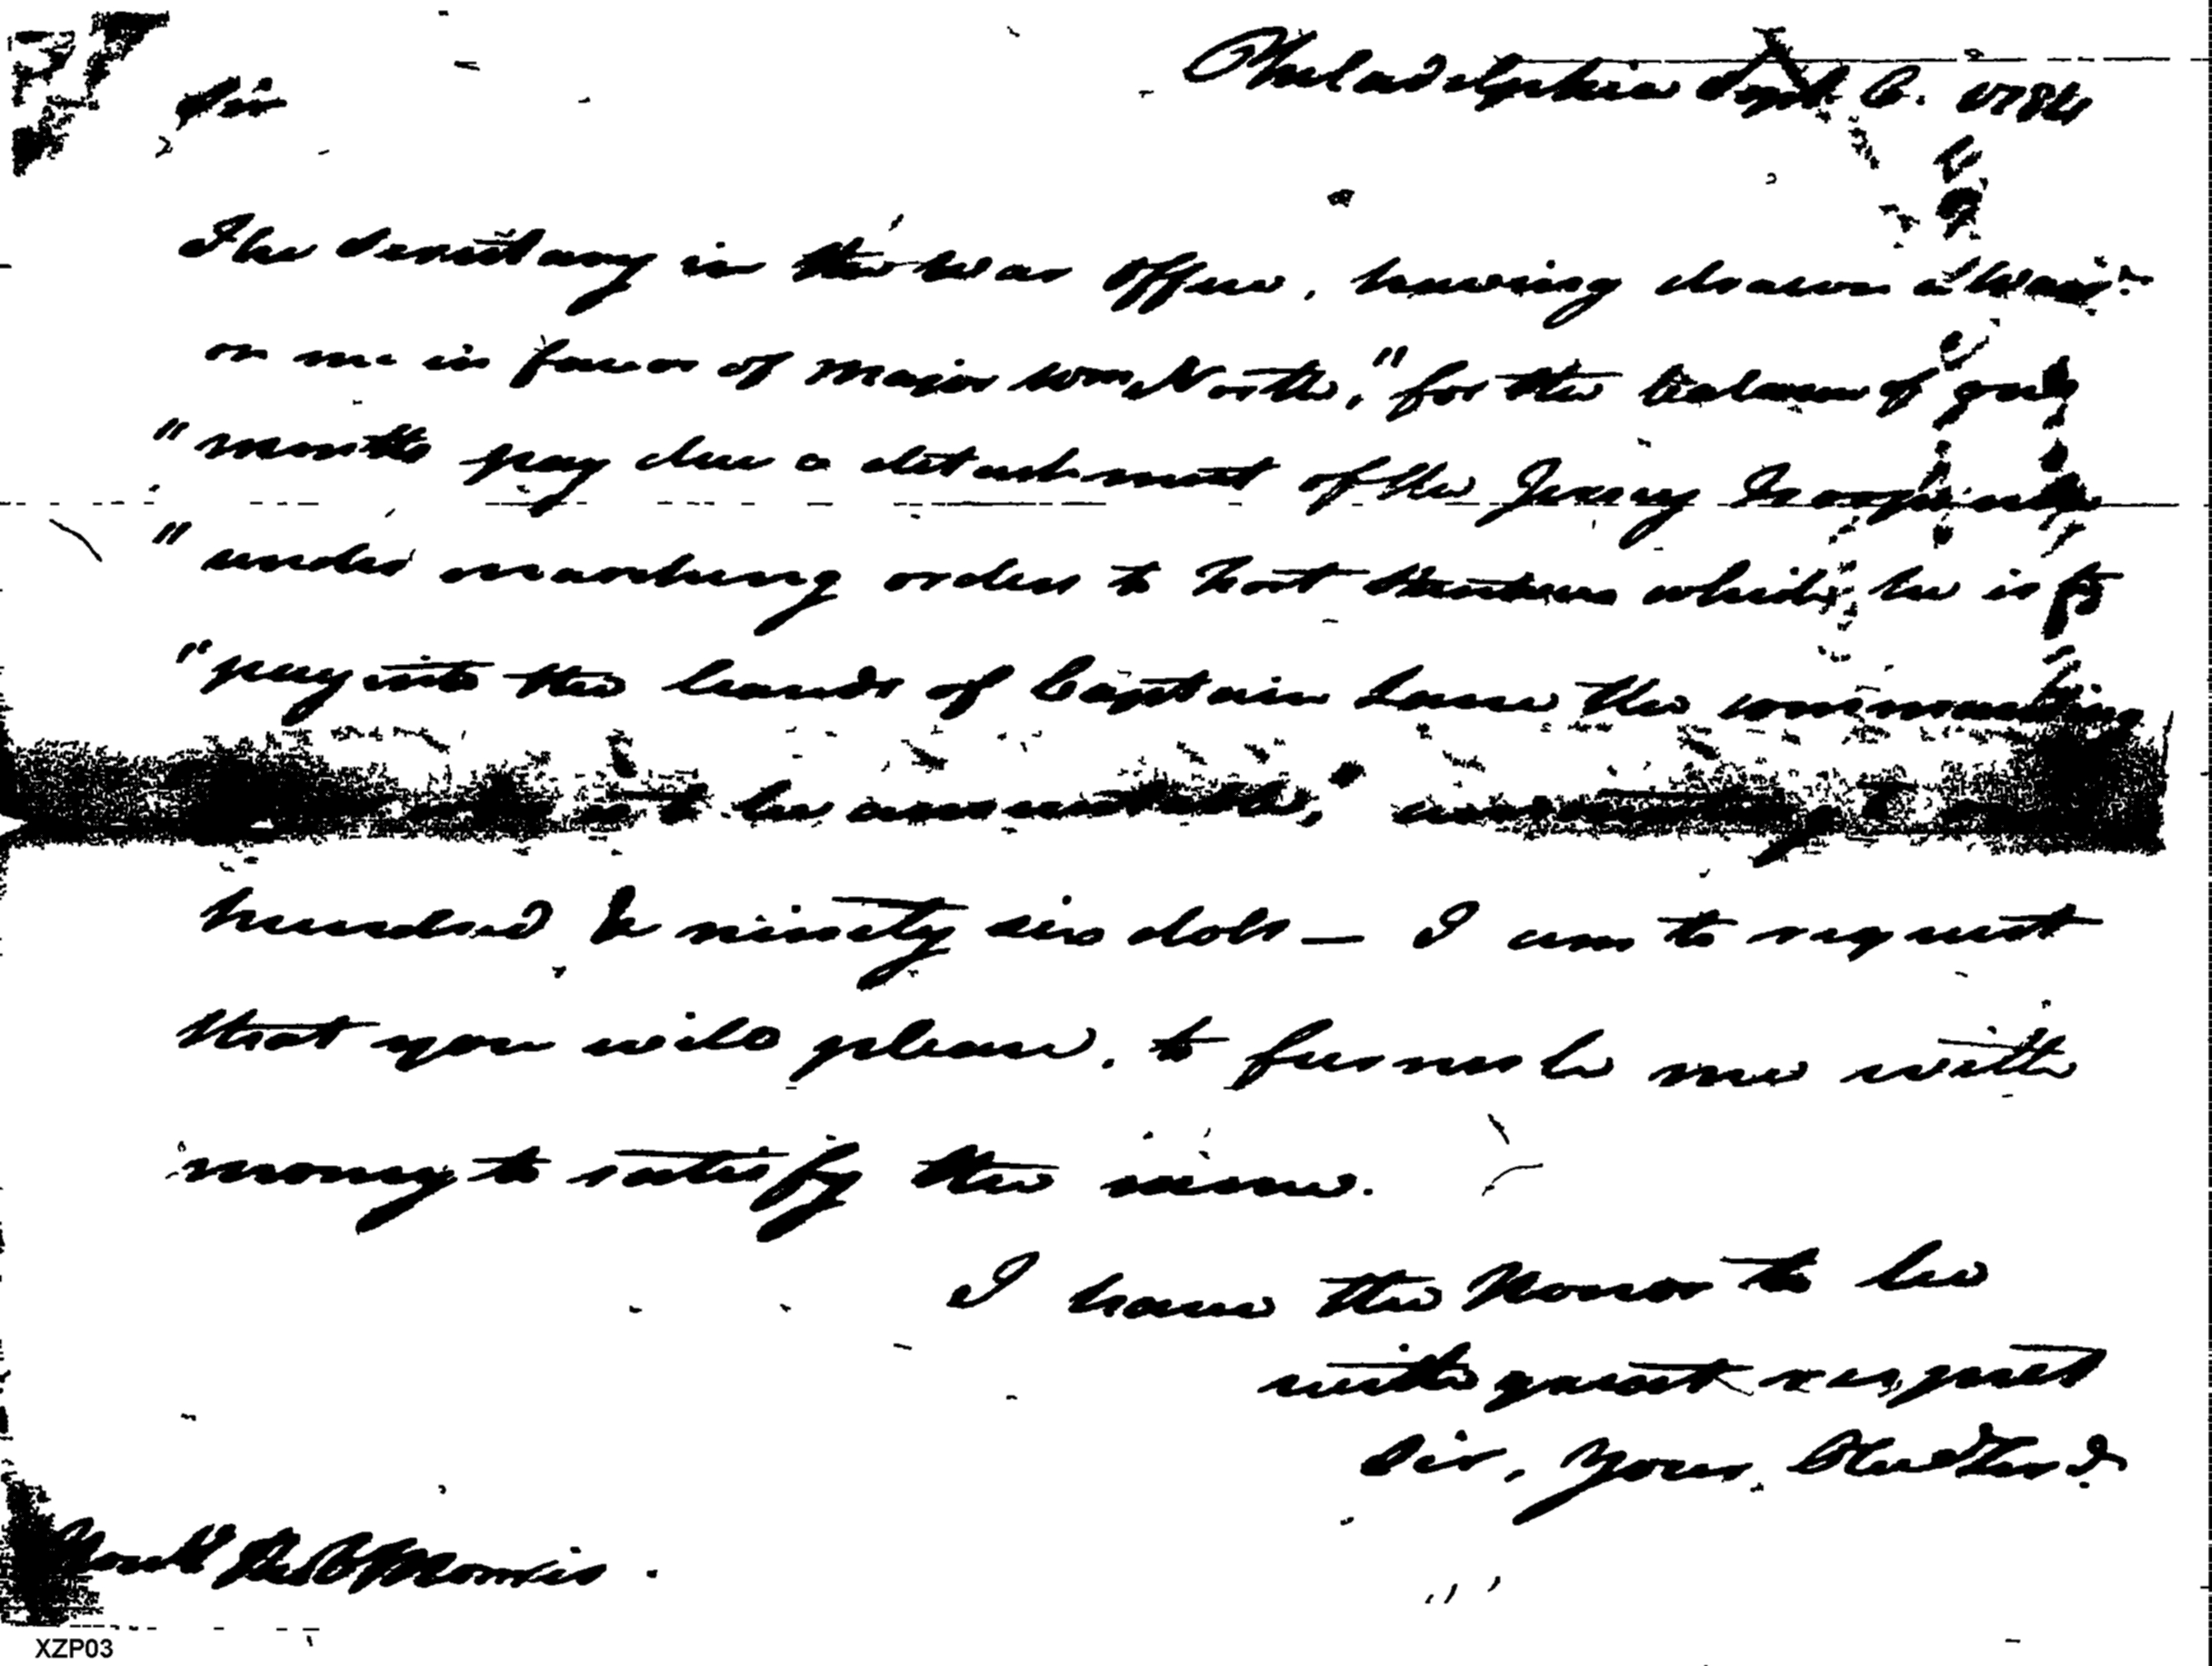 Philadelphia Sept. 6. 1784
Sir
The Secretary in the War Office, having drawn a Warr.
on me in favor of Major Wm North, "for the balance of
"months pay due a detachment of the Jersey Troops
"under marching orders to Fort Stanwix which he is to
"pay into the hands of Captain the commanding
be
hundred & ninety six dolls — I am to request
that you will please, to furnish me with
money to satisfy the same.
I have the Honor to be
with great respect
Sir, Your Obedt
Morris.
XZP03